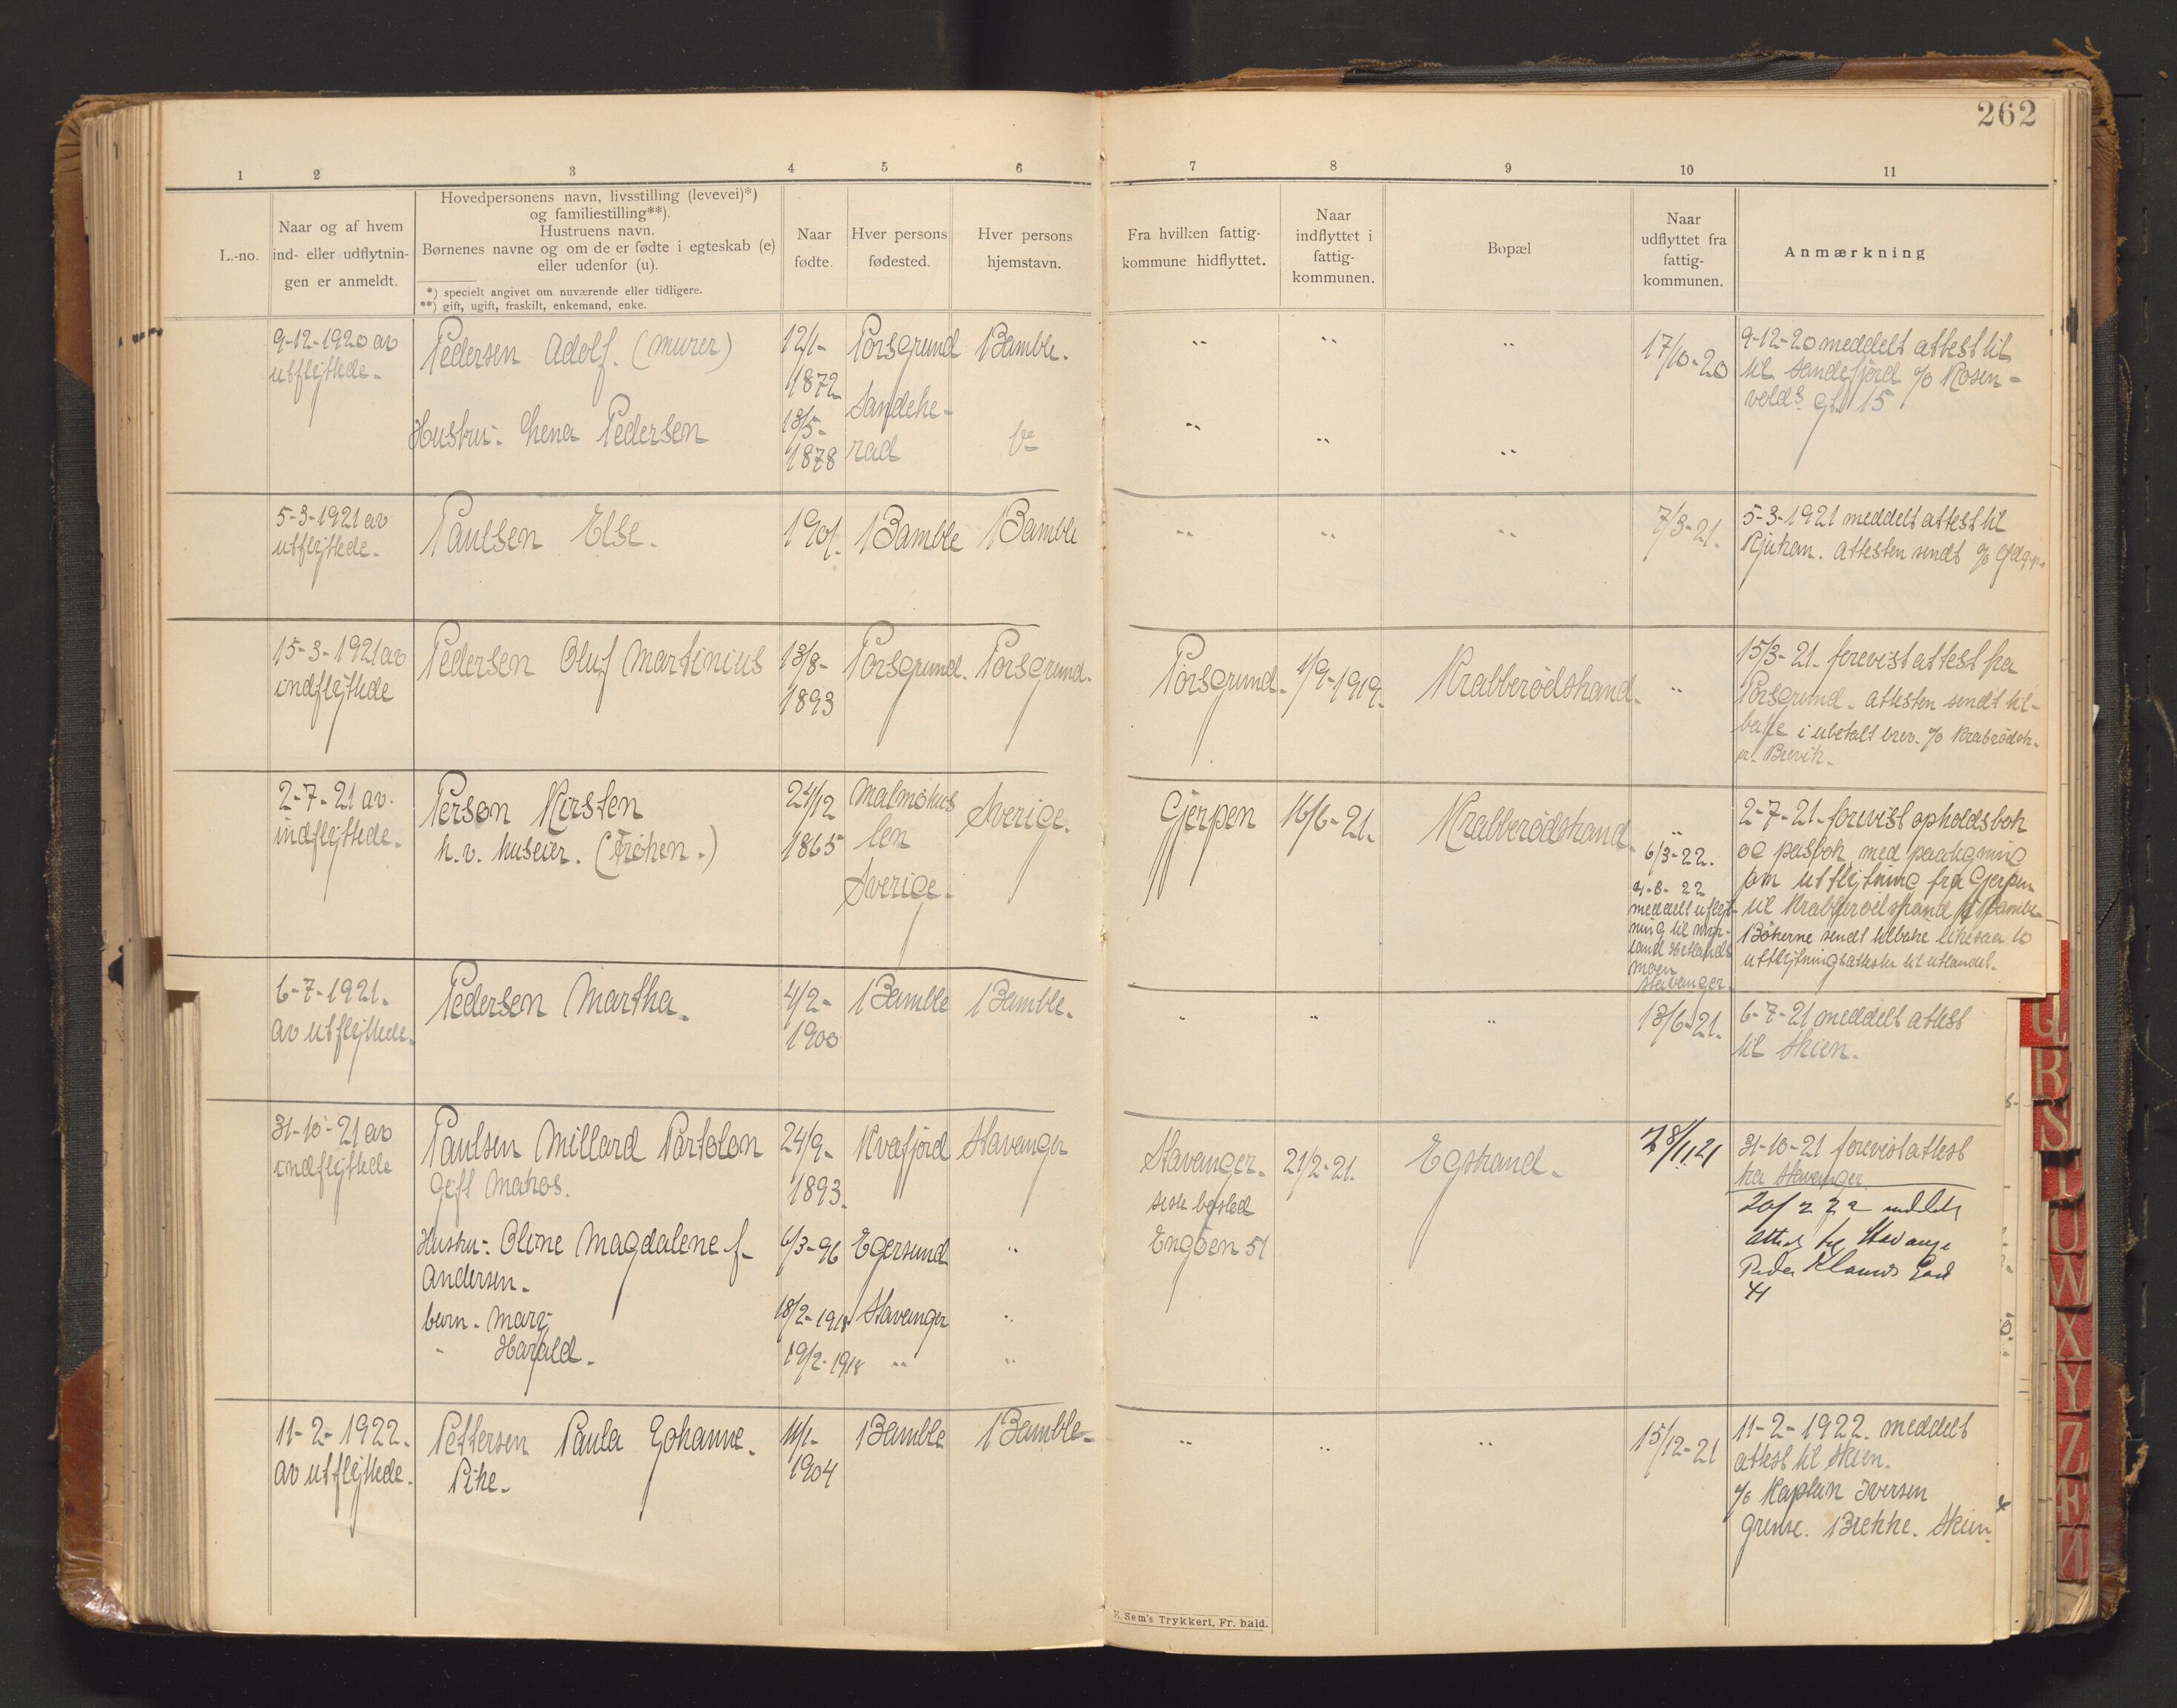 262
1 2 3 4 5 6 7 8 9 10 11
L.-no.
Naar og af hvem
ind- eller udflytnin-
gen er anmeldt.
Hovedpersonens navn, livsstilling (levevei)*)
og familiestilling**).
Hustruens navn.
Børnenes navne og om de er fødte i egteskab (e)
eller udenfor (u).
*) specielt angivet om nuværende eller tidligere.
**) gift, ugift, fraskilt, enkemand, enke.
Naar
fødte.
Hver persons
fødested.
Hver persons
hjemstavn.
Fra hvilken fattig-
kommune hidflyttet.
Naar
indflyttet i
fattig-
kommunen.
Bopæl
Naar
udflyttet fra
fattig-
kommunen.
Anmærkning
9-12-1920 av
utflyttede.
Pedersen Adolf. (murer)
Hustru: Lena Pedersen
12/1-
1872
13/5-
1878
Porsgrund
Sandehe-
rad
Bamble.
17/10-20
9-12-20 meddelt attest til
til Sandefjord c/o Rosen-
volds gt. 15
5-3-1921 av
utflyttede.
Paulsen Else.
1901.
Bamble
Bamble
7/3-21.
5-3-1921 meddelt attest til
Rjukan. Attesten sendt c/o
15-3-1921 av
indflyttede
Pedersen Oluf Martinius
13/8-
1893
Porsgrund.
Porsgrund.
Porsgrund.
1/9-1919.
Krabberødstrand.
15/3-21. forevist attest fra
Porsgrund. Attesten sendt til-
bake i ubetalt brev. c/o Krabrødstr.
pr. Brevik.
2-7-21 av.
indflyttede.
Person Kirsten
h.v. huseier. (Frøken.)
24/12
1865
Malmøhus
len
Sverige.
Sverige.
Gjerpen
16/6-21.
Krabberødstrand.
6/3-22.
4-8-22
meddelt utflyt-
ning til
land Hetlands
moen
Stavanger.
2-7-21. forevist opholdsbok
og pasbok med paategning
om utflytning fra Gjerpen
til Krabberødstrand i Bamble
Bøkerne sendt tilbake likesaa to
utflytningsattester til utlandet.
6-7-1921.
av utflyttede.
Pedersen Martha.
4/2-
1900
Bamble
Bamble.
13/6-21.
6-7-21 meddelt attest
til Skien.
31-10-21 av
indflyttede
Paulsen Millard Partolon
Gift Matros.
Hustru: Oline Magdalene f.
Andersen.
barn. Mary
" Harald.
24/9-
1893.
6/3-96
18/2-1918
19/2-1918
Kvæfjord
Egersund
Stavanger
Stavanger
Stavanger.
siste bosted
Engøen 51
21/2-21.
Egstrand.
28/11.21
31-10-21 forevist attest
fra Stavanger.
20/2 22 meddelt
attest til Stavange
Peder Klaus Gad
41
11-2-1922.
av utflyttede.
Pettersen Paula Johanne.
Pike.
11/1-
1904
Bamble
Bamble
15/12-21
11-2-1922. meddelt
attest til Skien.
c/o Kaptein Iversen
Grense. Brekke. Skien.
E. Sem's Trykkeri, Fr. hald.
Q
R
S
T
U
W
X
Y
Z
Æ